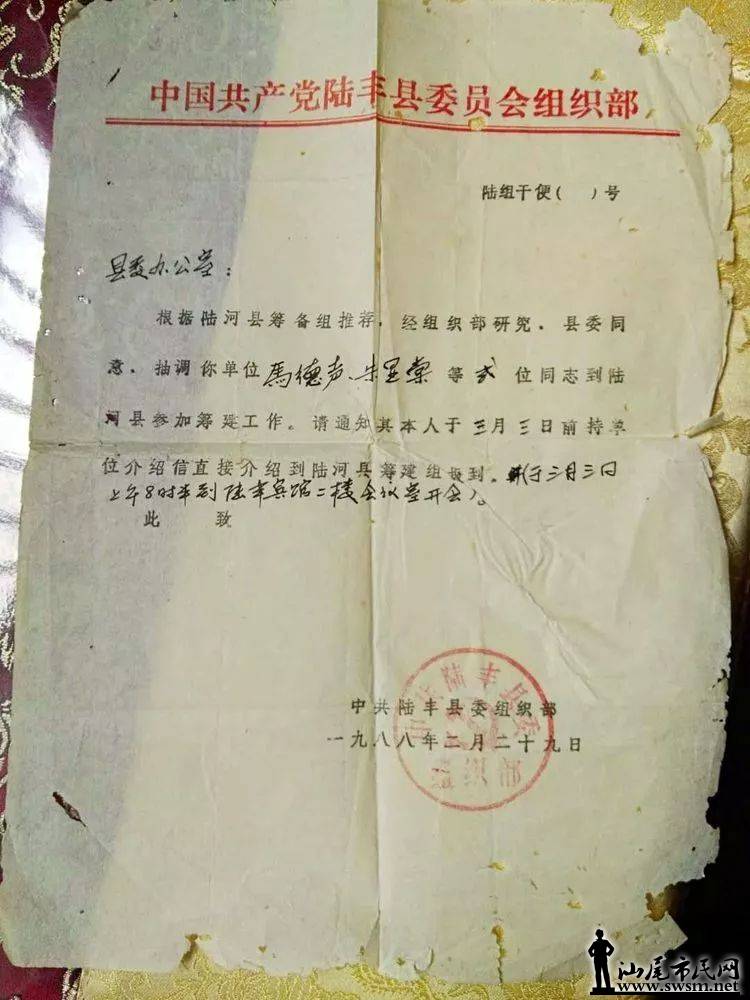 中国共产党陆丰县委员会组织部
陆组干便( )号
县委办公室：
根据陆河县筹备组推荐，经组织部研究，县委同
意，抽调你单位馬德声、朱 等弍位同志到陆
河县参加筹建工作。请通知其本人于三月三日前持单
位介绍信直接介绍到陆河县筹建组报到。并于三月三日
上午8时半到陆丰宾馆二楼会议室开会。
此 致
中共陆丰县委组织部
一九八八年二月二十九日
中共陆丰县委
组织部
汕尾市民网
www.swsm.net